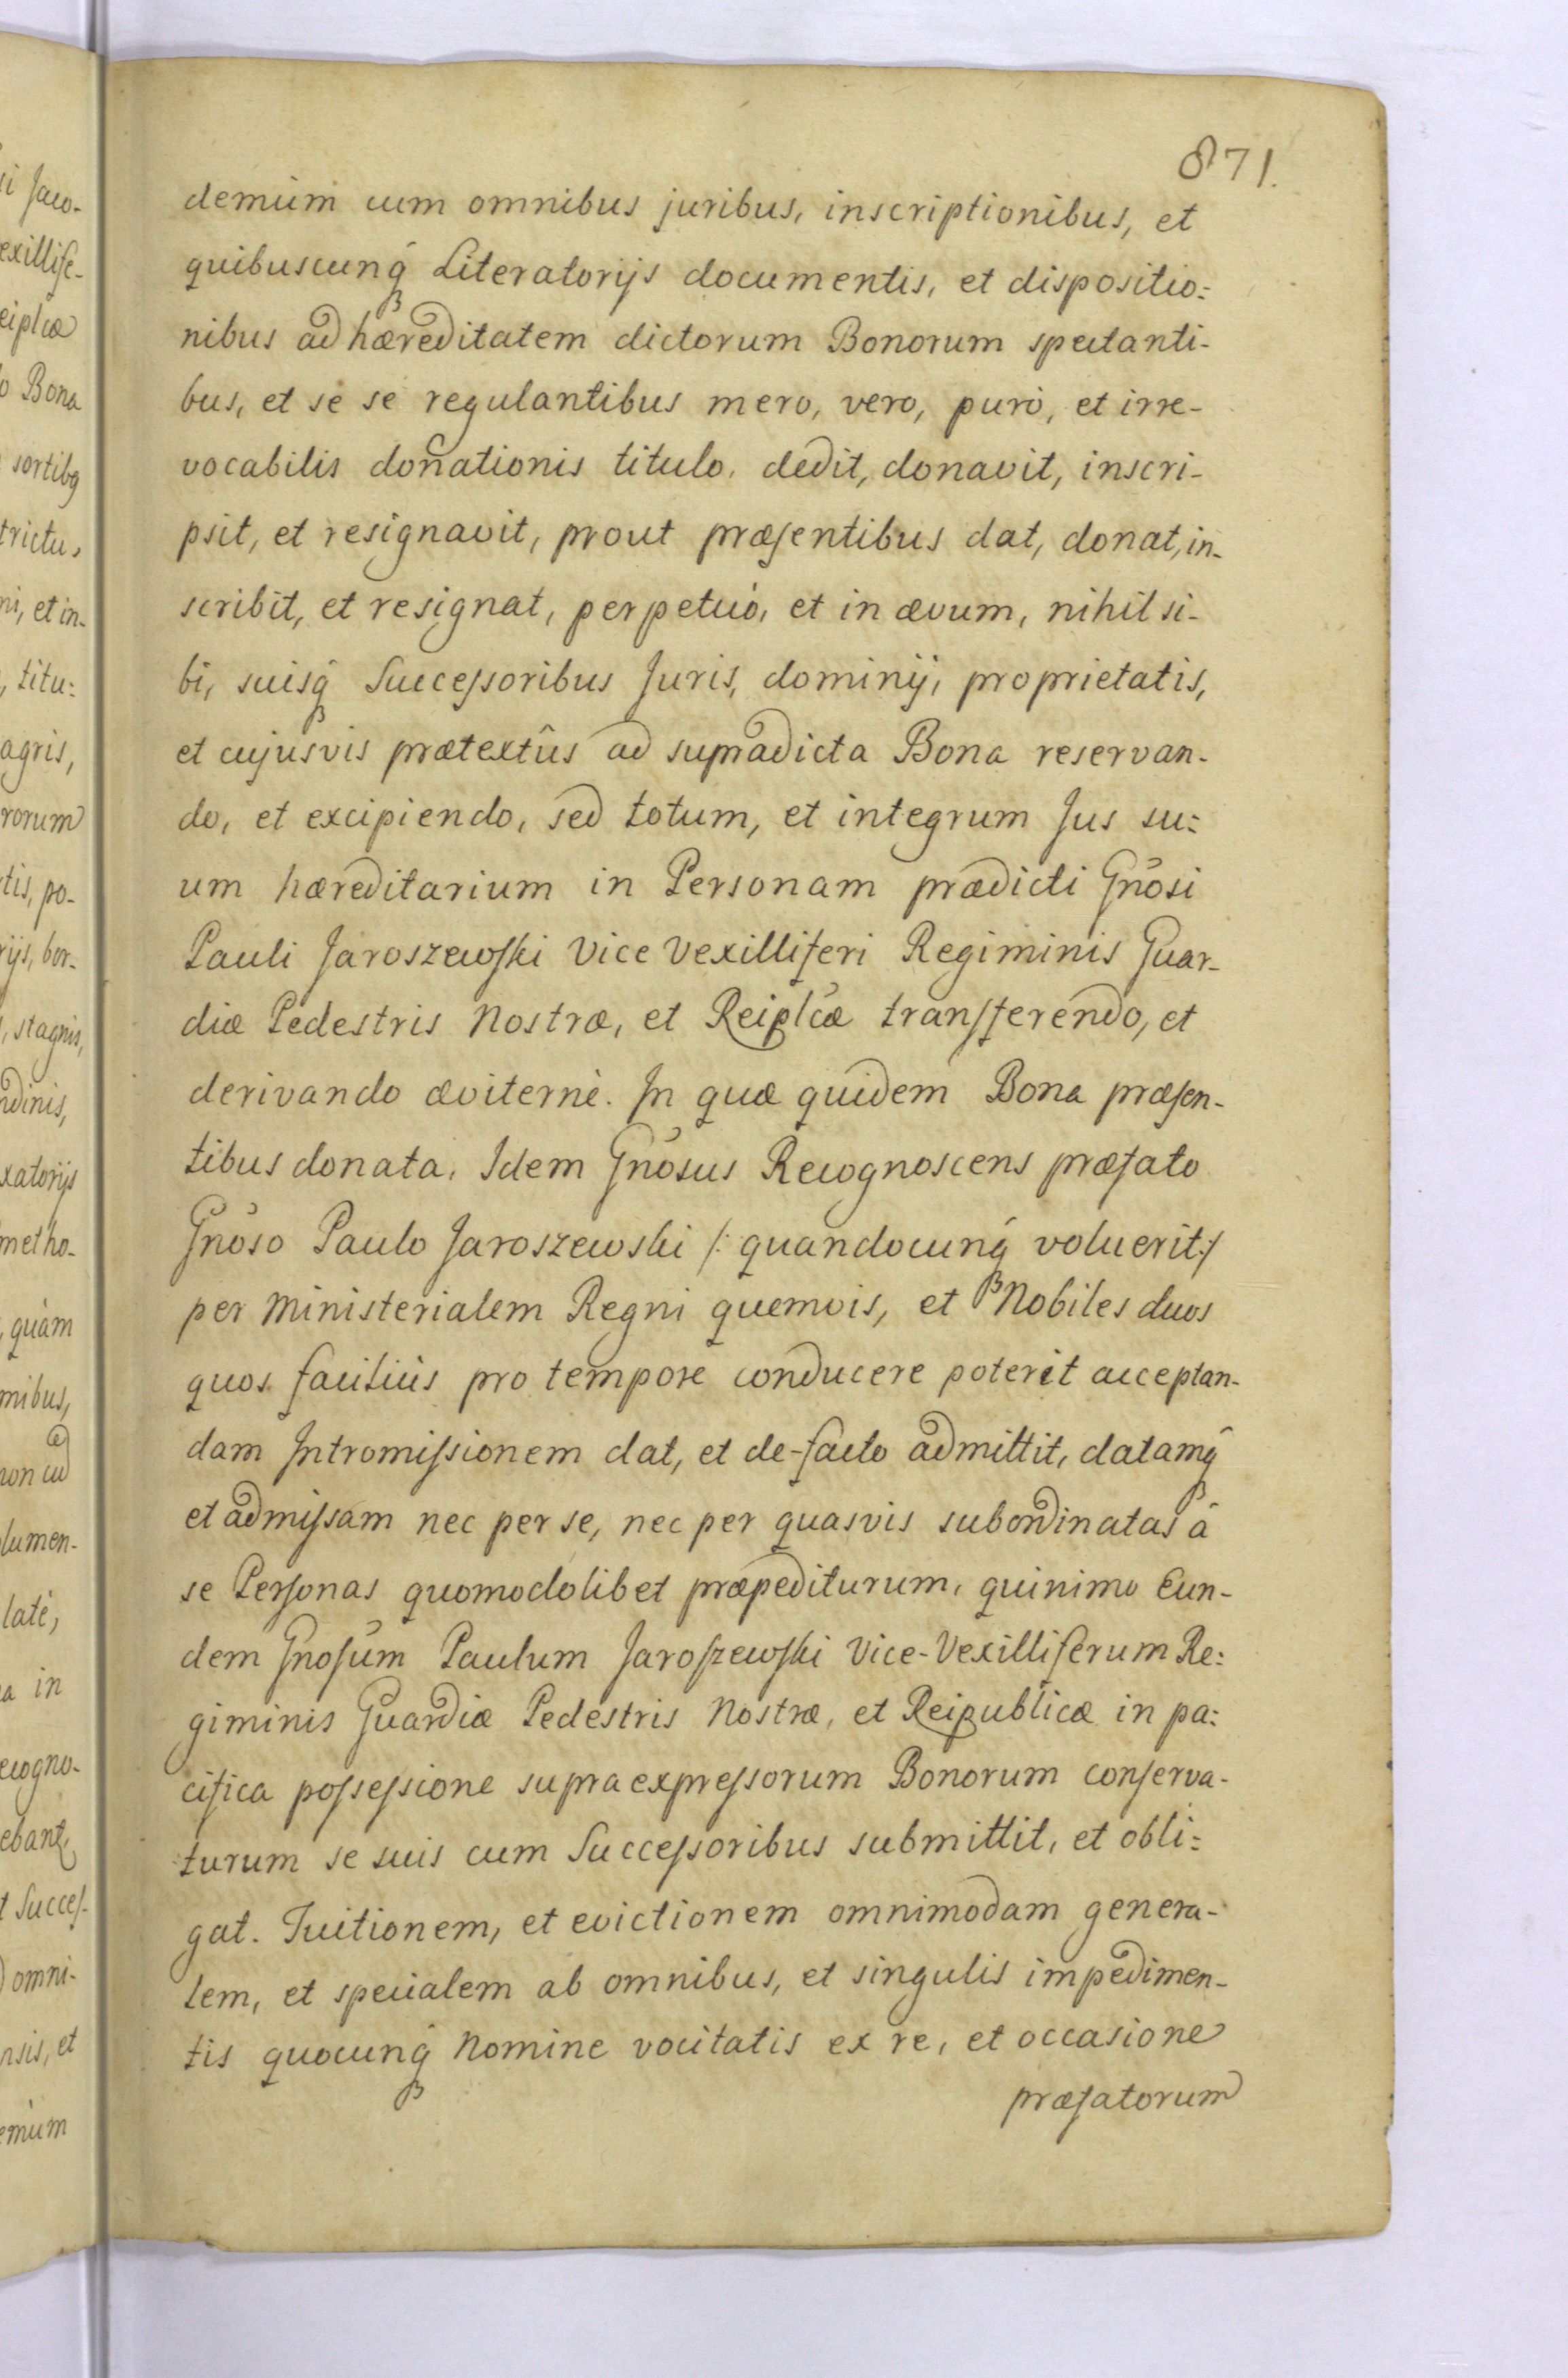 871.
demùm cum omnibus juribus, inscriptionibus, et
quibuscunq́ Literatorijs documentis, et dispositio:
nibus ad hæreditatem dictorum Bonorum spectanti-
bus, et se se regulantibus mero, vero, purò, et irre-
vocabilis donationis titulo, dedit, donavit, inscri-
psit, et resignavit, prout præſentibus dat, donat, in-
scribit, et resignat, perpetuò, et in ævum, nihil si-
bi, suisq́ Succeſsoribus Juris, dominij, proprietatis,
et cujusvis prætextûs ad supradicta Bona reservan-
do, et excipiendo, sed totum, et integrum Jus su:
um hæreditarium in Personam prædicti Gñosi
Pauli Jaroszewſki Vice Vexilliferi Regiminis Guar-
diæ Pedestris Nostræ, et Reiplcæ transferendo, et
derivando æviternè. In quæ quidem Bona præſen-
tibus donata, Idem Gñosus Recognoscens præfato
Gñoso Paulo Jaroszewski /: quandocunq́ voluerit :/
per Ministerialem Regni quemvis, et Nobiles duos
quos faciliùs pro tempore conducere poterit acceptan-
dam Intromiſsionem dat, et de-facto admittit, datamq́
et admiſsam nec per se, nec per quasvis subordinatas â
se Perſonas quomodolibet præpediturum, quinimo Eun-
dem Gnoſum Paulum Jaroſzewſki Vice-Vexilliferum Re:
giminis Guardiæ Pedestris Nostræ, et Reipublicæ in pa:
cifica poſseſsione supraexpreſsorum Bonorum conſerva-
turum se suis cum Succeſsoribus submittit, et obli:
gat. Tuitionem, et evictionem omnimodam genera-
lem, et specialem ab omnibus, et singulis impedimen-
tis quocunq́ Nomine vocitatis ex re, et occasione
præfatorum
i Jaco-
exillife-
eiplcæ
o Bona
sortibq
trictu,
ni, et in-
, titu:
agris,
rorum
tis, po-
rijs, bor-
, stagnis,
ndinis,
xatorijs
metho-
, quàm
mibus,
non ad
olumen-
latè,
a in
ecogno-
ebant,
t Succeſ-
omni-
nsis, et
emùm